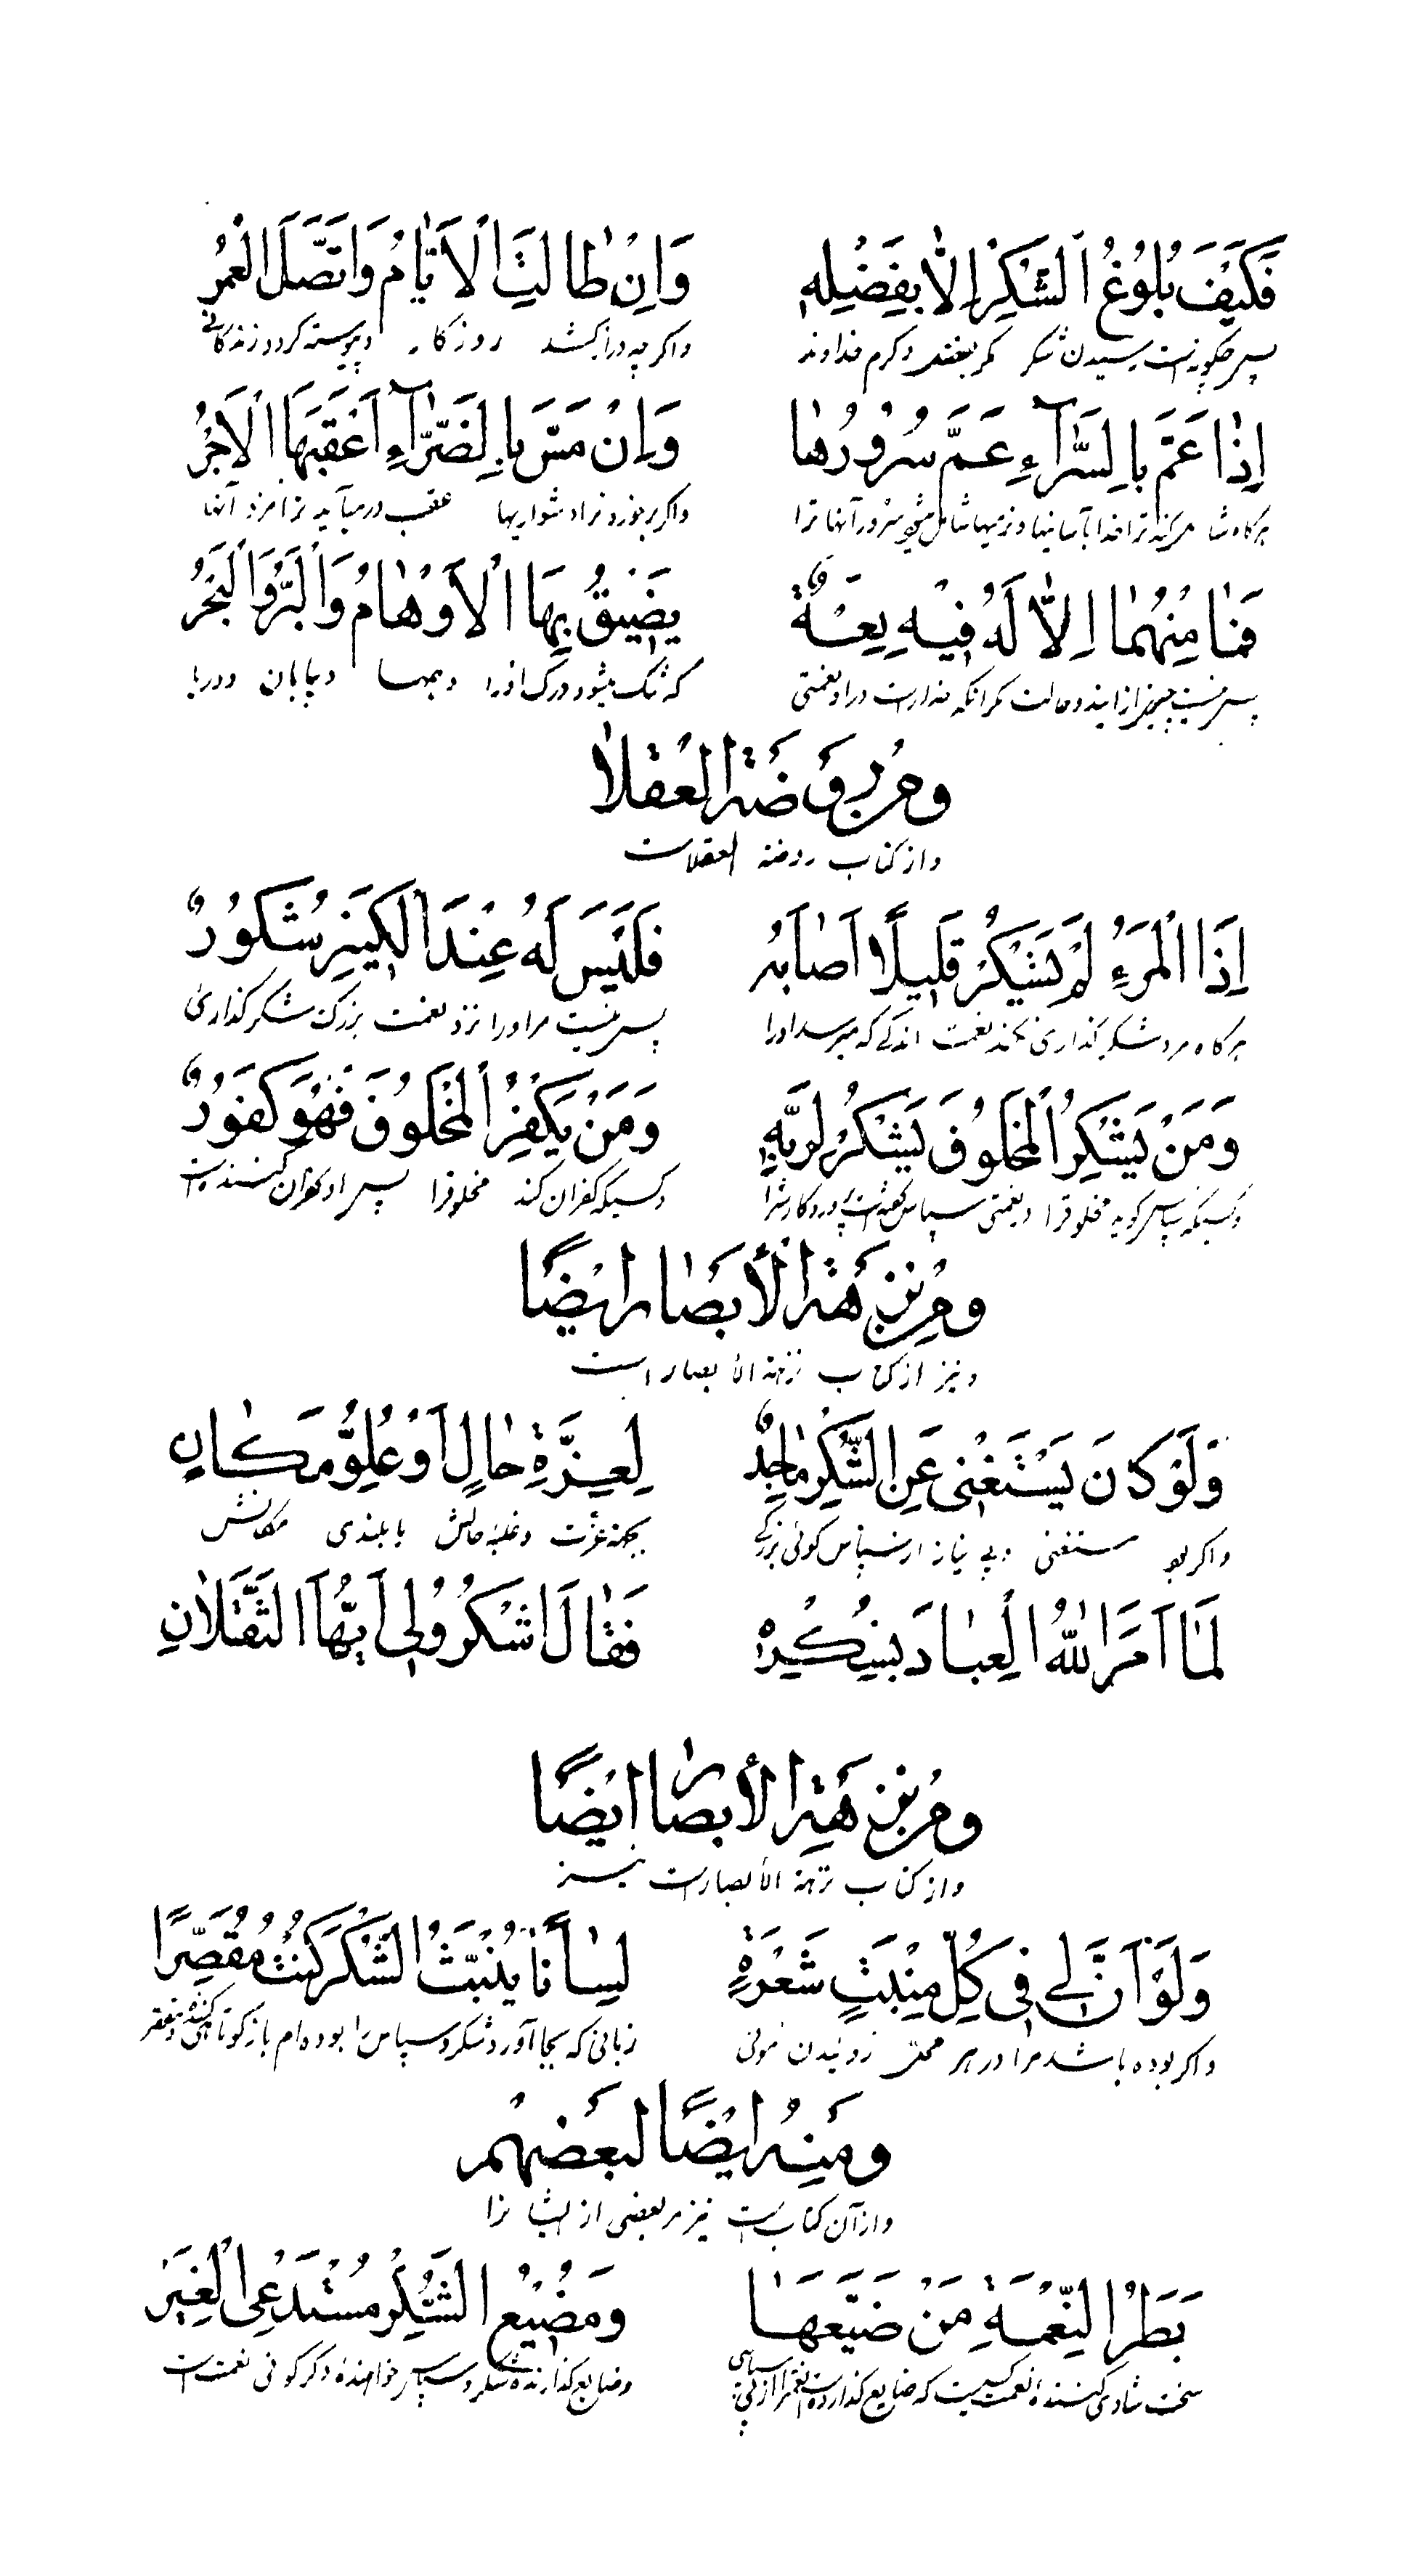 فَكَيْفَ بُلُوغُ الشُّكْرِ اِلّٰا بِفَضْلِهِ وَاِنْ طٰالَتِ الْاَيّٰامُ وَاتَّصَلَ الْعُمْرُ
پس چگونه است رسیدن شکر مگر بفضل و کرم خداوند واگر چه دراز کشد روزگار و پیوسته گردد زندگانی
اِذٰا عَمَّ بِالسَّرّٰآءِ عَمَّ سُرُورُهٰا وَاِنْ مَسَّ بِالضَّرّٰآءِ اَعْقَبَهَا الْاَجْرُ
هرگاه شامل کند ترا خدا بآسانیها و نرمیها شامل میشود سرور آنها ترا واگر برخورد ترا دشواریها عقب درمیآید ترا مزد آنها
فَمٰا مِنْهُمٰا اِلّٰا لَهُ فِيْهِ نِعْمَةٌ يَضِيقُ بِهَا الْاَوْهٰامُ وَالْبَرُّ وَالْبَحْرُ
پس نیست چیزی از ایندو حالت مگر آنکه خدا راست در او نعمتی که تنگ میشود درک آنرا وهمها و بیابان و دریا
ومن روضة العقلاء
واز کتاب روضة العقلاست
اِذَا الْمَرْءُ لَمْ يَشْكُرْ قَلِيلًا اَصٰابَهُ فَلَيْسَ لَهُ عِنْدَ الْكَبِيرِ شَكُورٌ
هرگاه مرد شکر گذاری نکند نعمت اندکی که میرسد اورا پس نیست مر اورا نزد نعمت بزرگ شکر گذاری
وَمَنْ يَشْكُرُ الْمَخْلُوقَ يَشْكُرْ لِرَبِّهِ وَمَنْ يَكْفُرُ الْمَخْلُوقَ فَهُوَ كَفُورٌ
وکسیکه سپاس گوید مخلوقرا در نعمتی سپاس گفته است پروردگارش را وکسیکه کفران کند مخلوقرا پس او کفران کننده است
ومن نزهة الأبصار ايضًا
ونیز از کتاب نزهة الأبصار است
وَلَوْ كٰانَ يَسْتَغْنِى عَنِ الشُّكْرِ مٰاجِدٌ لِعِزَّةِ حٰالٍ اَوْ عُلُوِّ مَكٰانٍ
واگر بود مستغنی و بی نیاز از سپاس گوئی بزرگی بجهة عزّت وغلبهٔ حالش یا بلندی مکانش
لَمٰا اَمَرَ اللّٰهُ الْعِبٰادَ بِشُكْرِهِ فَقٰالَ اشْكُرُولِى اَيُّهَا الثَّقَلٰانِ
ومن نزهة الأبصار ايضًا
واز کتاب نزهة الأبصار است نیز
وَلَوْ اَنَّ لِي فِى كُلِّ مَنْبَتِ شَعْرَةٍ لِسٰانًا يُنْبِتُ الشُّكْرَ كُنْتُ مُقَصِّرًا
واگر بوده باشد مرا در هر محلّ روئیدن موئی زبانی که بجا آورد شکر و سپاس را بوده ام باز کوتاهی کننده و مقصّر
ومنه ايضًا لبعضهم
واز آن کتاب است نیز مر بعضی از ایشان را
بَطَرُ النِّعْمَةِ مَنْ ضَيَّعَهٰا وَمُضِيْعُ الشُّكْرِ مُسْتَدْعِى الْغِيَرْ
سخت شادی کننده نعمت کسیست که ضایع گذارد وضایع گذارنده شکر و سپاس خواهنده دگرگونی نعمت است